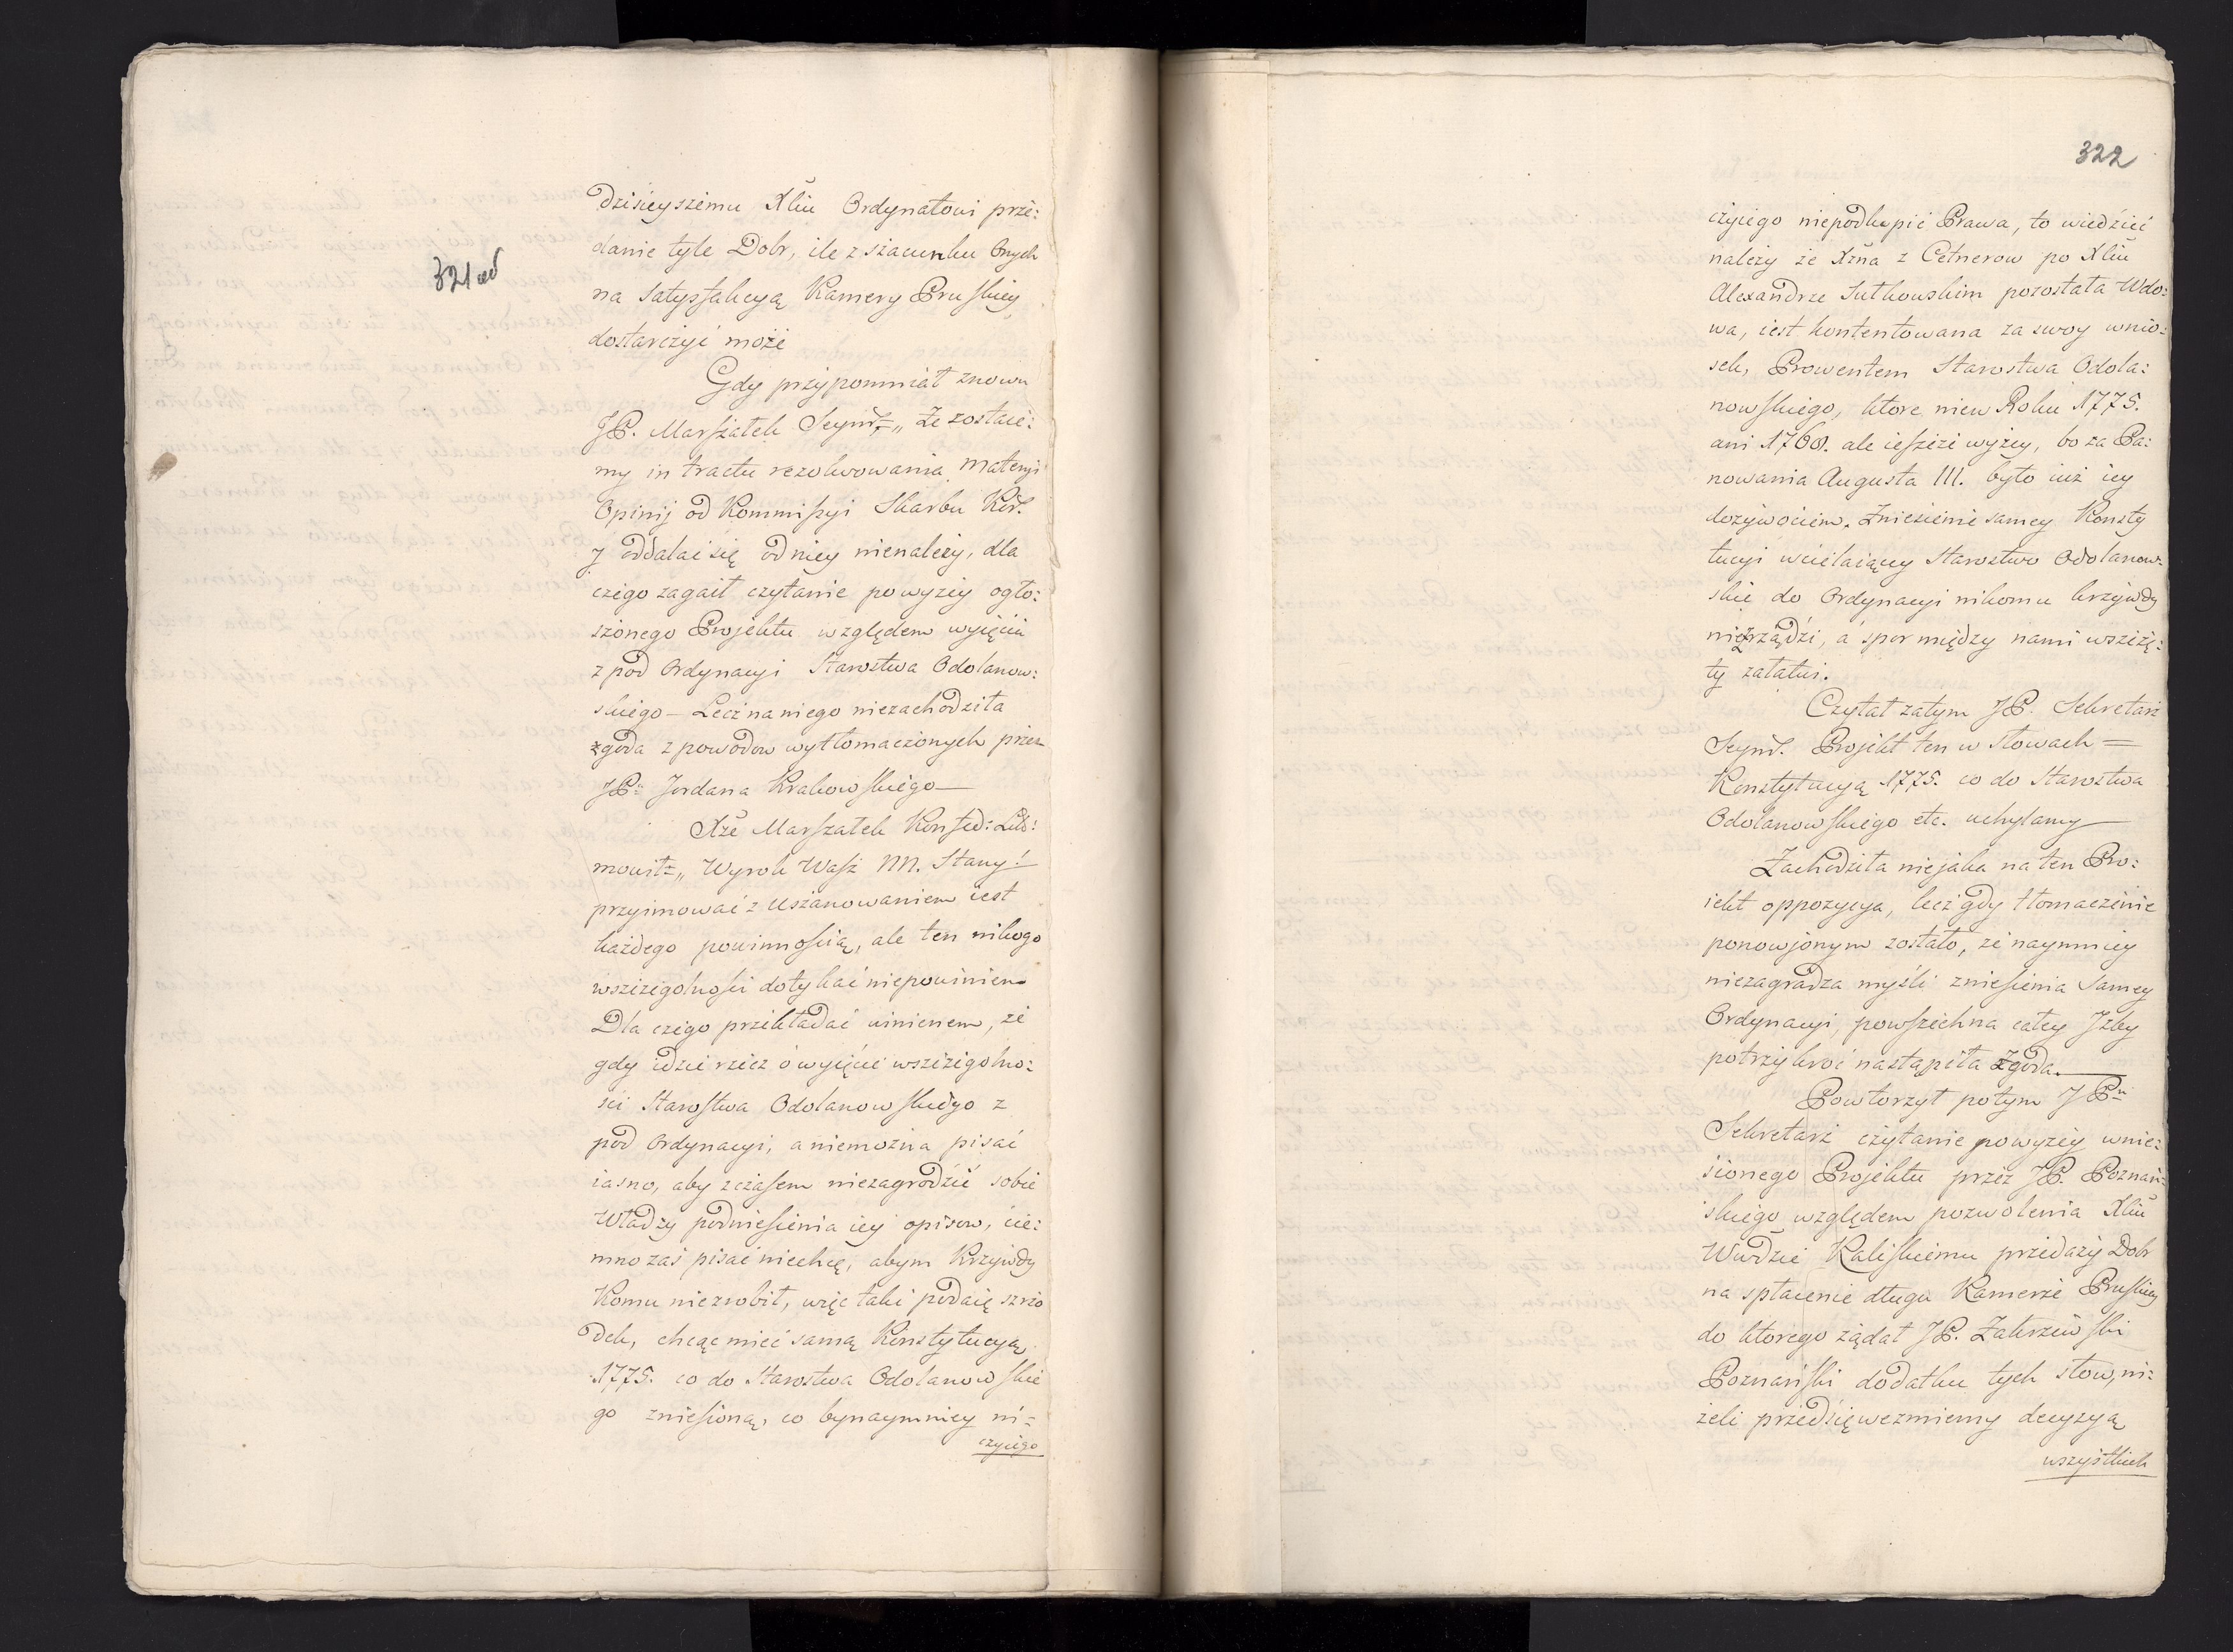 321 od
dzisieyszemu Xciu Ordynatowi prze:
danie tyle Dobr, ile z szacunku Onych
na satysfakcyą Kamery Pruskiey
dostarczyć może
Gdy przypomniał znowu
JP. Marszałek Seymo: „ Że zostaie:
my in tractu rezolwowania materyi
Opinij od Kommissyi Skarbu Kor.
y oddalać się od niey nienależy, dla
czego zagaił czytanie powyżey ogło:
szonego Projektu względem wyięcia
z pod Ordynacyi Starostwa Odolanow:
skiego – Lecz na niego niezachodziła
zgoda z powodow wytłomaczonych przez
JP. Jordana Krakowskiego —
Xże Marszałek Konfed: Litt:
mowił „ Wyrok Wasz NN. Stany!
przyimować z uszanowaniem iest
każdego powinnością, ale ten nikogo
wszczegolności dotykać niepowinien
Dla czego przekładać winienem, że
gdy idzie rzecz o wyięcie wszczegolno:
ści Starostwa Odolanowskiego z
pod Ordynacyi, a niemożna pisać
iasno, aby zczasem niezagrodzić sobie
Władzy podniesienia iey opisow, cie:
mno zaś pisać niechcę, abym Krzywdy
Komu niezrobił, więc taki podaię szrzo
dek, chcąc mieć samą Konstytucyą
1775. co do Starostwa Odolanowskie
go zniesioną, co bynaymniey ni=
czyiego
322
czyiego niepodkopie Prawa, to wiedzieć
należy że Xżna z Cetnerow po Xciu
Alexandrze Sułkowskim pozostała Wdo:
wa, iest kontentowana za swoy wnio:
sek, Prowentem Starostwa Odola:
nowskiego, ktore nie w Roku 1775.
ani 1768. ale ieszcze wyżey, bo za Pa:
nowania Augusta III. było iuż iey
dożywociem. Zniesienie samey Konsty
tucyi wcielaiącey Starostwo Odolanow:
skie do Ordynacyi nikomu krzywdy
niezrządzi, a spor między nami wszczę:
ty załatwi.
Czytał zatym JP. Sekretarz
Seymo. Projekt ten w słowach =
Konstytucyą 1775. co do Starostwa
Odolanowskiego etc. uchylamy —
Zachodziła niejaka na ten Pro:
iekt oppozycya, lecz gdy tłomaczenie
ponowjonym zostało, że naymniey
niezagradza myśli zniesienia samey
Ordynacyi, powszechna całey Jzby
potrzykroć nastąpiła zgoda. —
Powtorzył potym JPn
Sekretarz czytanie powyżey wnie:
sionego Projektu przez JP. Poznań:
skiego względem pozwolenia Xciu
Wwdzie Kaliskiemu przedaży Dobr
na spłacenie długu Kamerze Pruskiey
do ktorego żądał JP. Zakrzewski
Poznański dodatku tych słow, ni:
żeli przedsięwezmiemy decyzyą
wszystkich